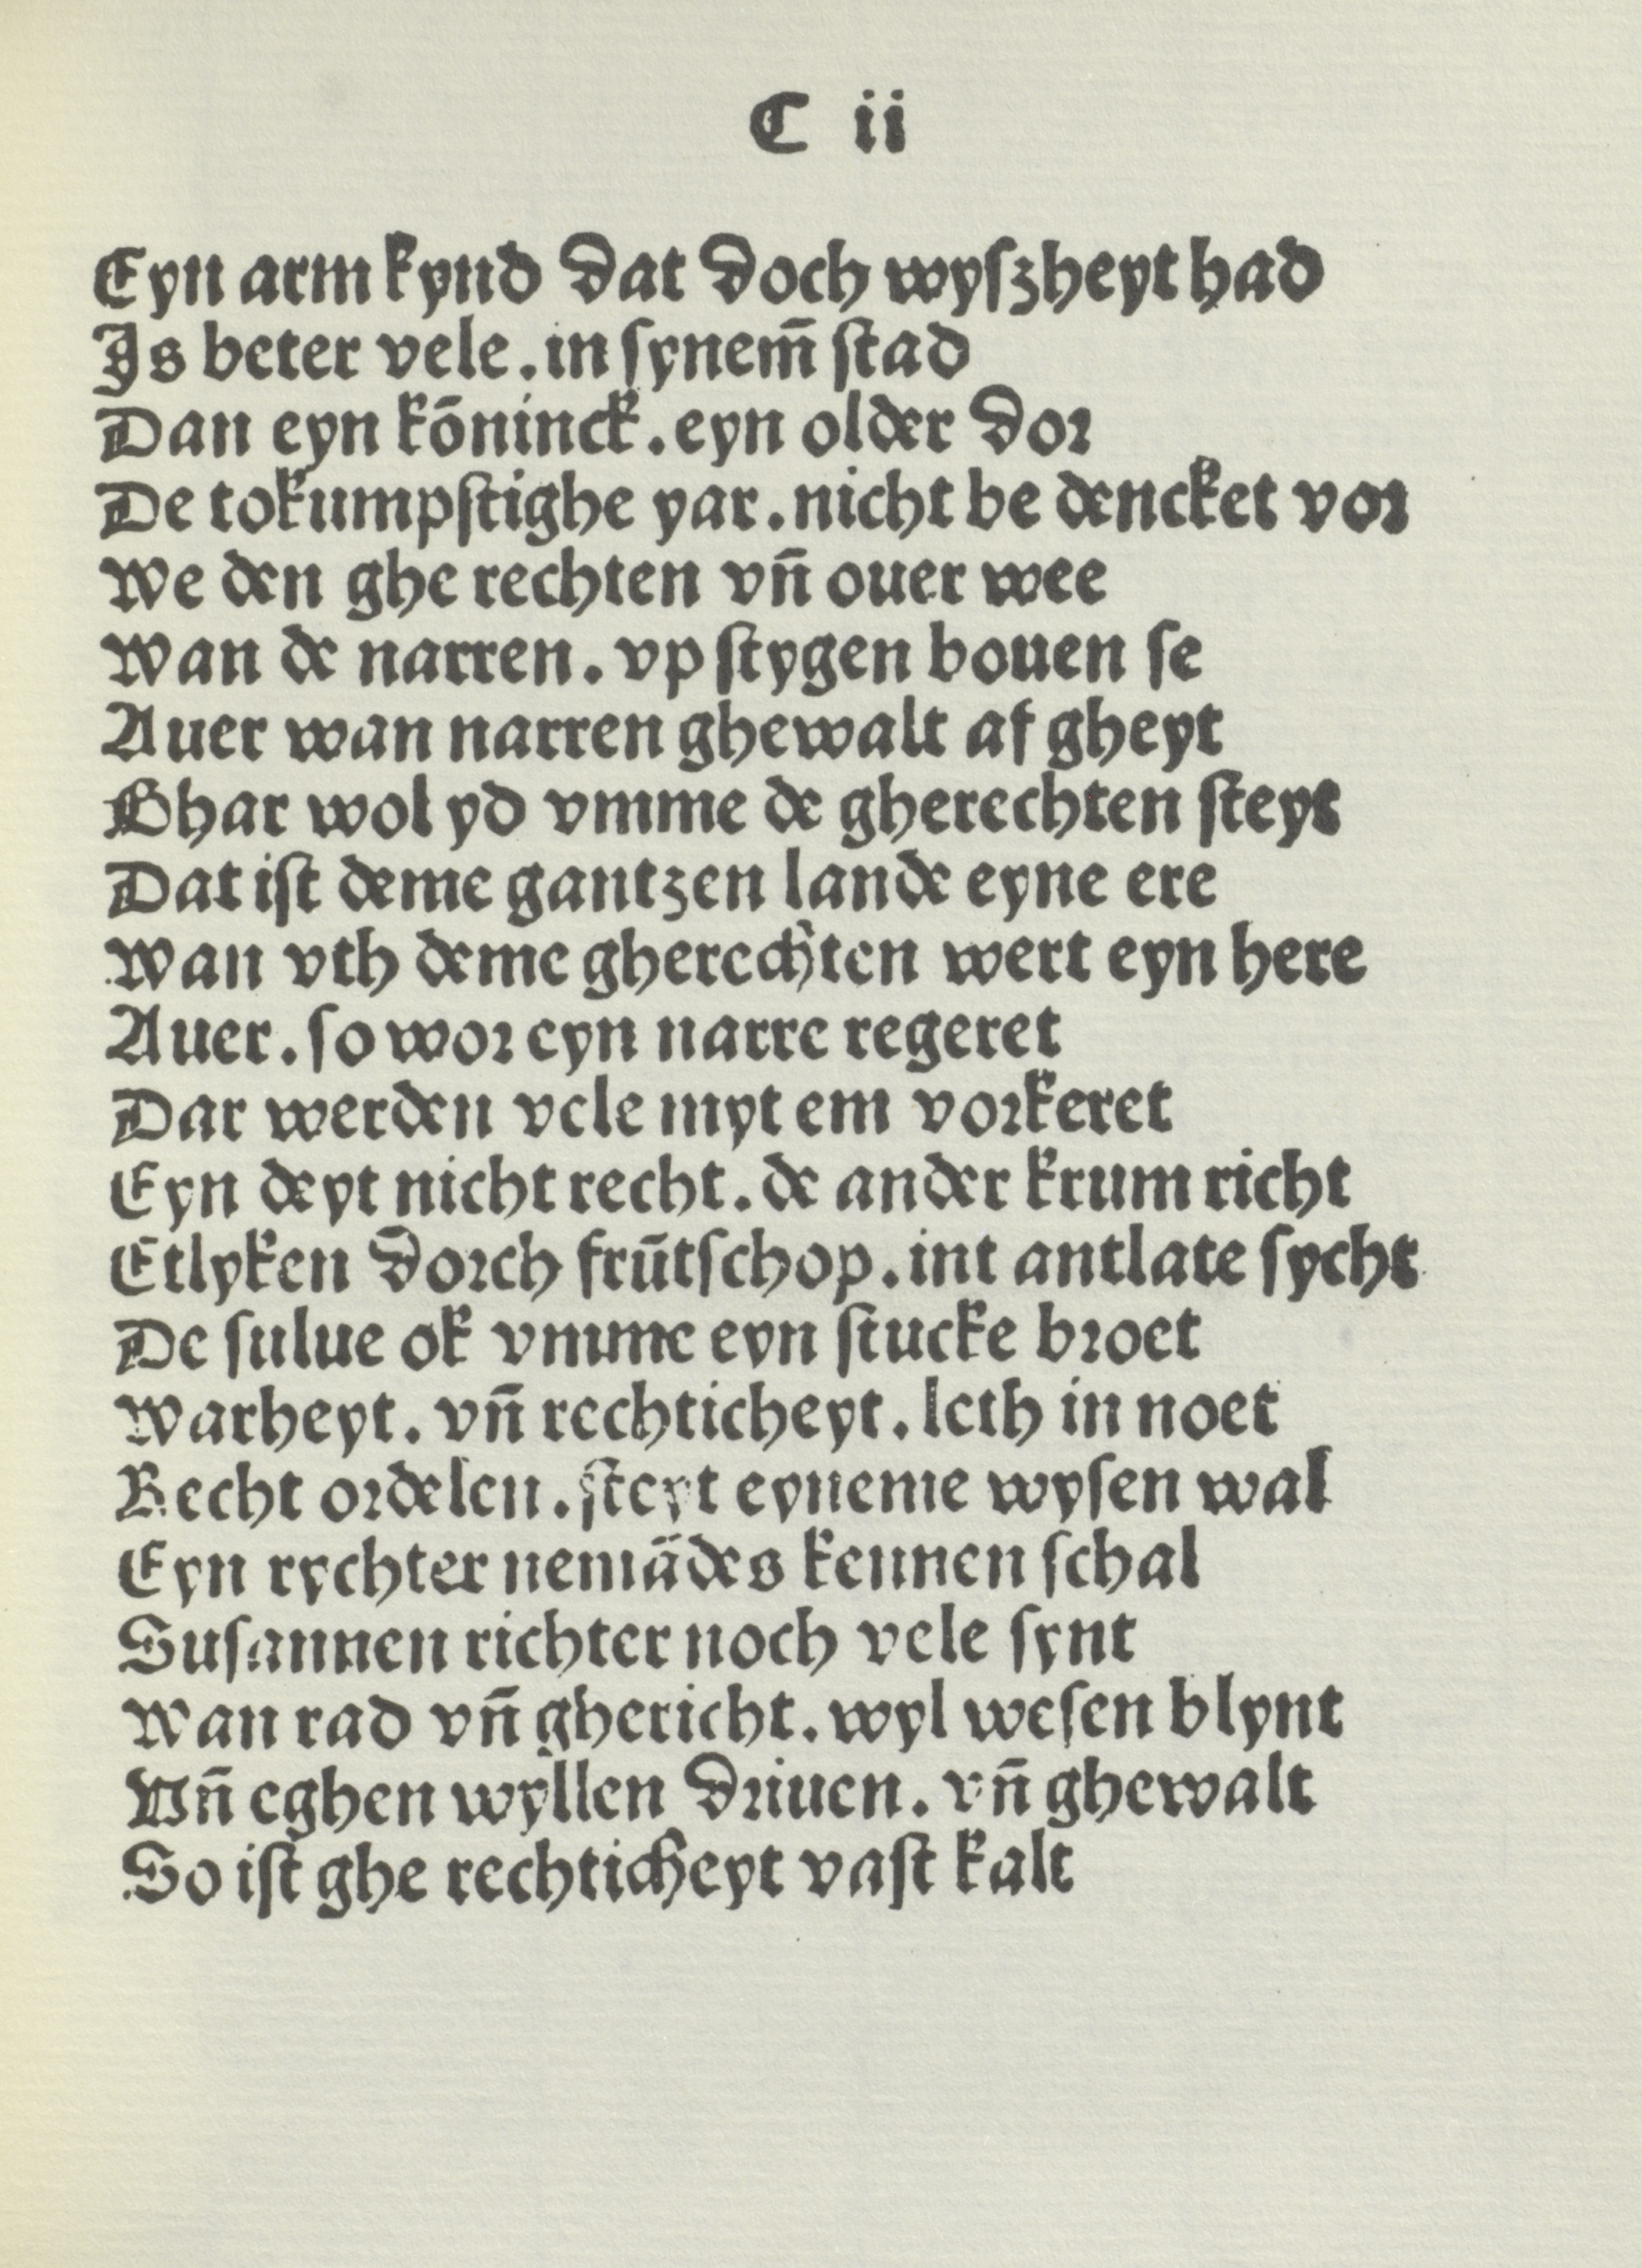 C ii
Eyn arm kynd dat doch wyſzheyt had
Js beter vele. in ſynem̄ ſtad
Dan eyn kōninck. eyn older dor
De tokumpſtighe yar. nicht be dencket vor
We den ghe rechten vn̄ ouer wee
Wan de narren. vp ſtygen bouen ſe
Auer wan narren ghewalt af gheyt
Ghar wol yd vmme de gherechten ſteyt
Dat iſt deme gantzen lande eyne ere
Wan vth deme gherechten wert eyn here
Auer. ſo wor eyn narre regeret
Dar werden vele myt em vorkeret
Eyn deyt nicht recht. de ander krum richt
Etlyken dorch frūtſchop. int antlate ſycht
De ſulue ok vmme eyn ſtucke broet
Warheyt. vn̄ rechticheyt. leth in noet
Recht ordelen. ſteyt eyneme wyſen wal
Eyn rychter nemādes kennen ſchal
Suſannen richter noch vele ſynt
Wan rad vn̄ ghericht. wyl weſen blynt
Vn̄ eghen wyllen driuen. vn̄ ghewalt
So iſt ghe rechticheyt vaſt kalt